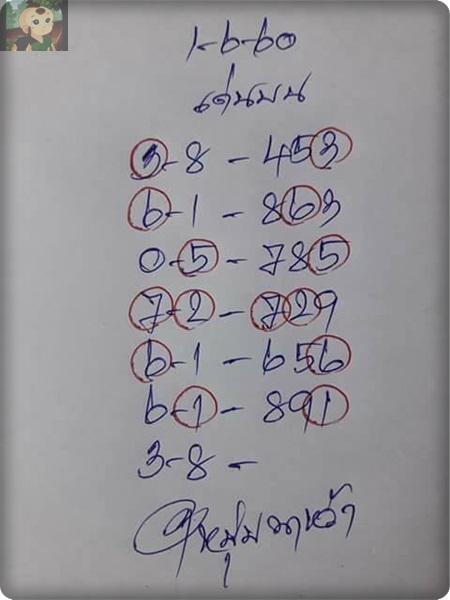 1-6-60
เด่นบน
3-8 - 453
6-1 - 863
0-5 - 785
7-2 - 729
6-1 - 656
6-1 - 891
3-8 -